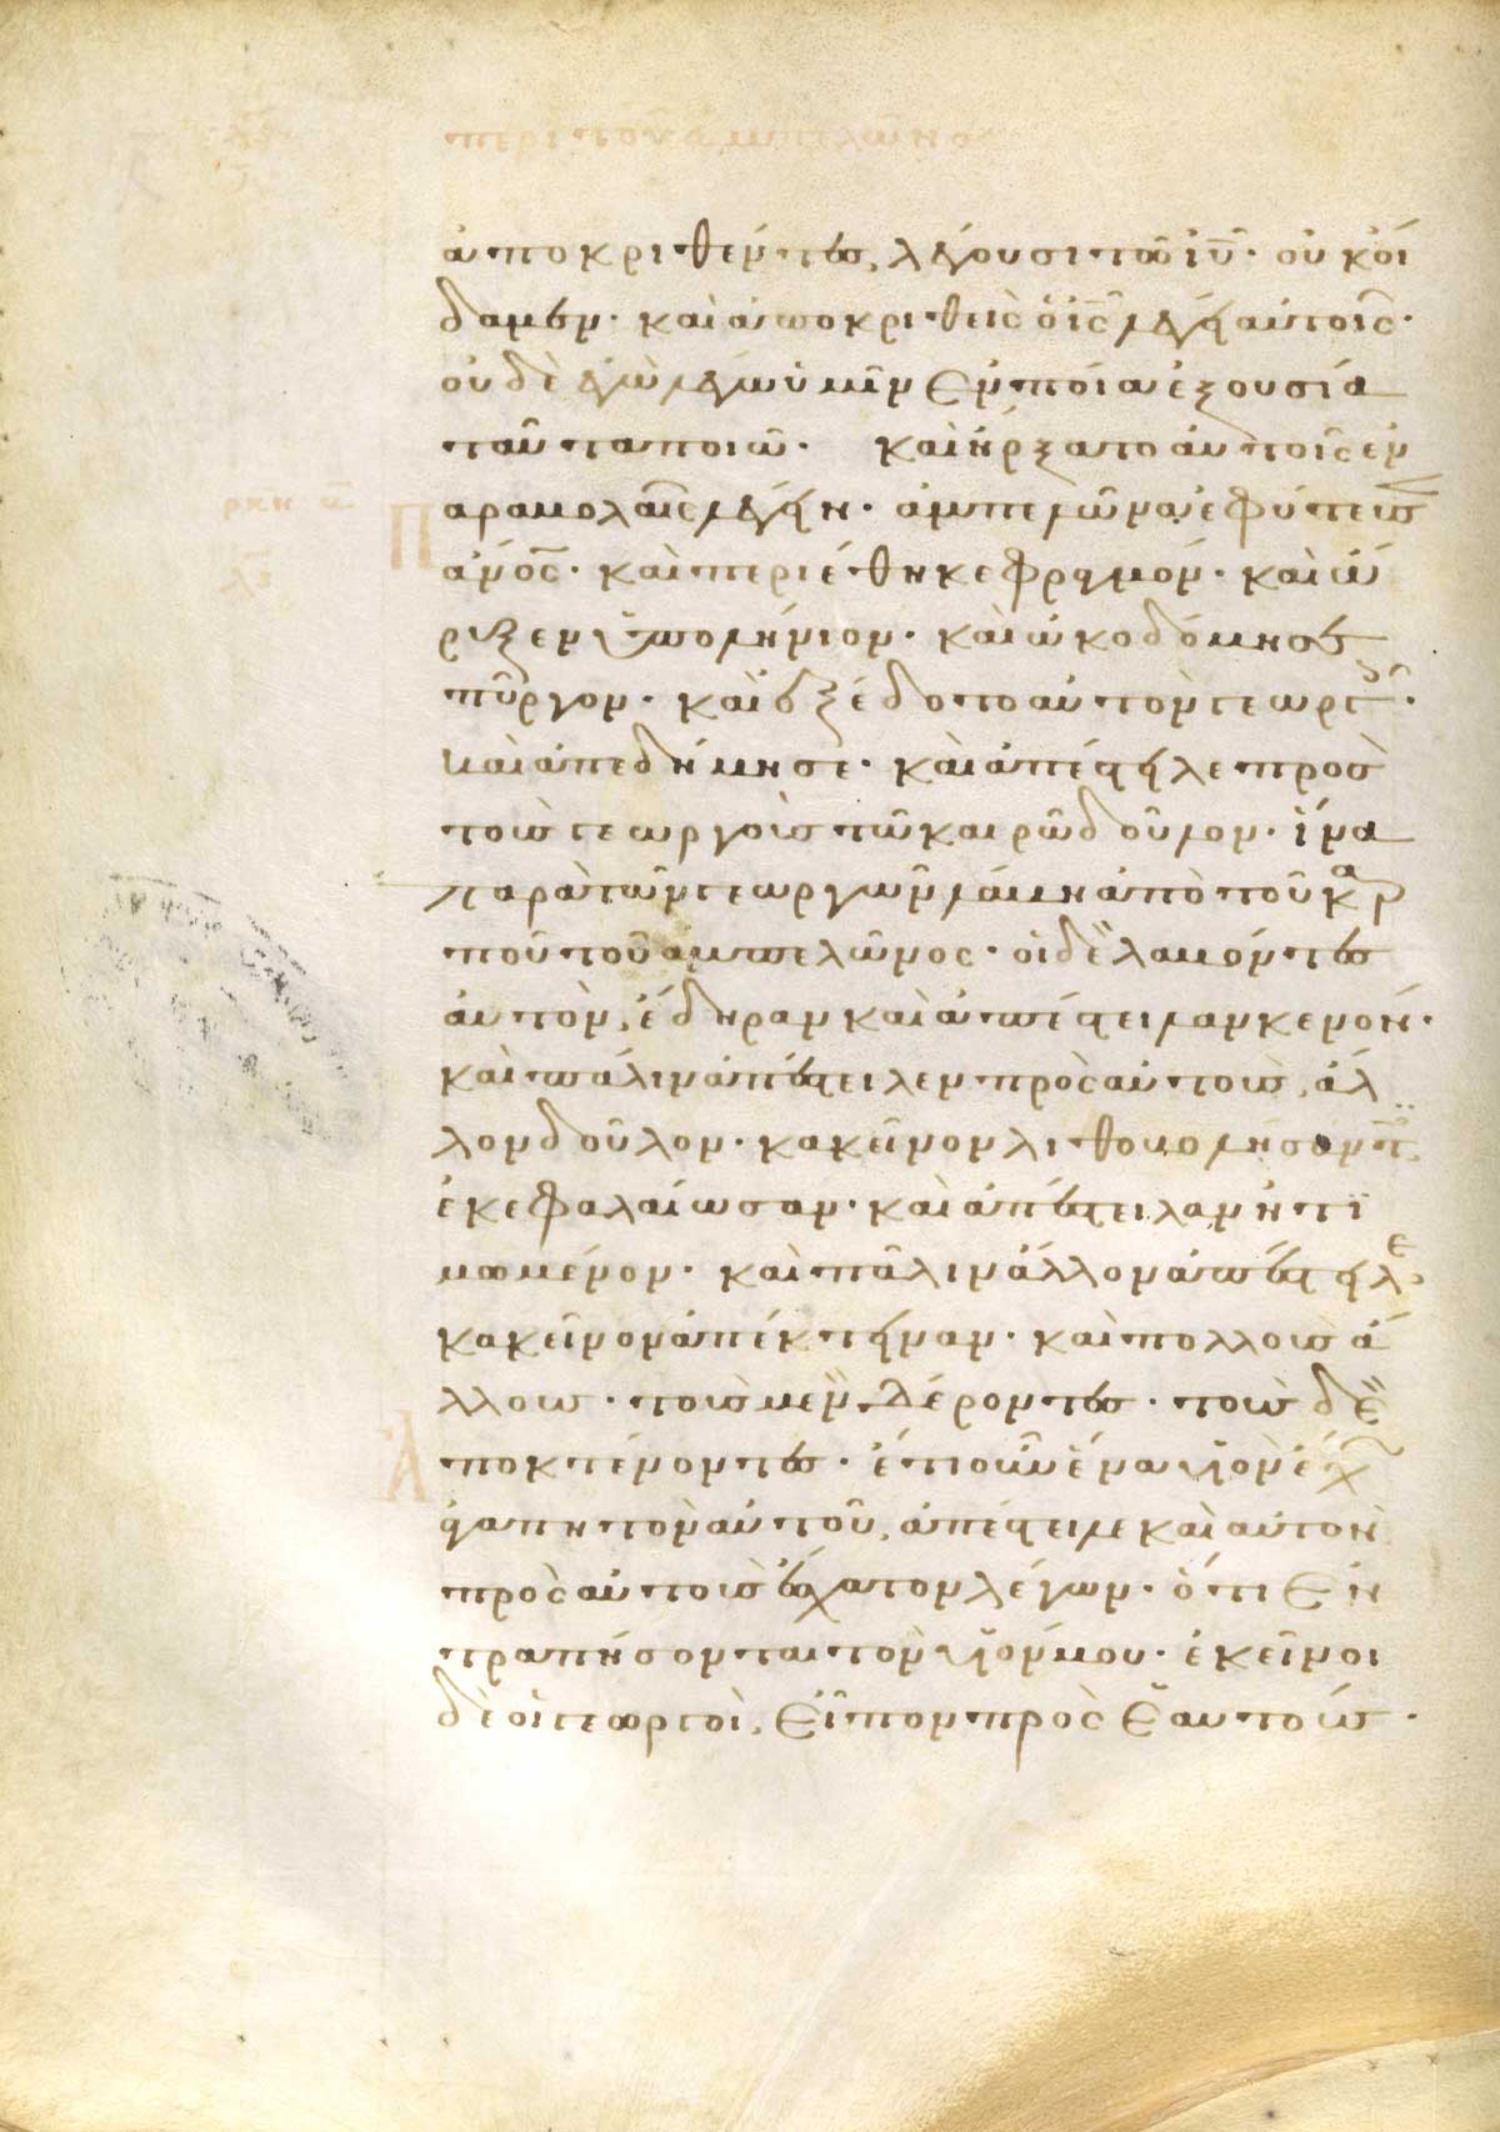 περὶ τοῦ ἀμπελῶνος
ἀποκριθέντες, λέγουσι τῶ ἰῦ· οὐκ οἴ
δαμεν· καὶ ἀποκριθεὶς ὁ ἰς λέγει αὐτοῖς·
οὐδὲ ἐγὼ λέγω ὑμῖν ἐν ποία ἐξουσία
ταῦτα ποιῶ· καὶ ἤρξατο αὐτοῖς ἐν
ρκη
Παραβολαῖς λέγειν· ἀμπελῶνα ἐφύτευσεν
ἄνος· καὶ περιέθηκε φραγμόν· καὶ ὤ
ρυξεν ὑπολήνιον· καὶ ὠκοδόμησε
πύργον· καὶ ἐξέδοτο αὐτὸν γεωργοῖς·
καὶ ἀπεδήμησε· καὶ ἀπέστειλε πρὸς
τοὺς γεωργοὺς τῶ καιρῶ δοῦλον· ἵνα
παρὰ τῶν γεωργῶν λάβη ἀπὸ τοῦ καρ
ποῦ τοῦ ἀμπελῶνος· οἱ δὲ λαβόντες
αὐτὸν, ἔδηραν καὶ ἀπέστειλαν κενόν·
καὶ πάλιν ἀπέστειλεν πρὸς αὐτοὺς, ἄλ
λον δοῦλον· κακεῖνον λιθοβολήσαντες
ἐκεφαλαίωσαν· καὶ ἀπέστειλαν ἠτι
μωμένον· καὶ πάλιν ἄλλον ἀπέστειλε·
κακεῖνον ἀπέκτειναν· καὶ πολλοὺς ἄ
λλους· τοὺς μὲν δέροντες· τοὺς δὲ
Ἀποκτένοντες· ἔτι οὖν ἕνα υἱὸν ἔχων
ἀγαπητὸν αὐτοῦ, ἀπέστειλε καὶ αὐτὸν
πρὸς αὐτοὺς ἔσχατον λέγων· ὅτι ἐν
τραπήσονται τὸν υἱόν μου· ἐκεῖνοι
δὲ οἱ γεωργοὶ, εἶπον πρὸς ἑαυτούς·